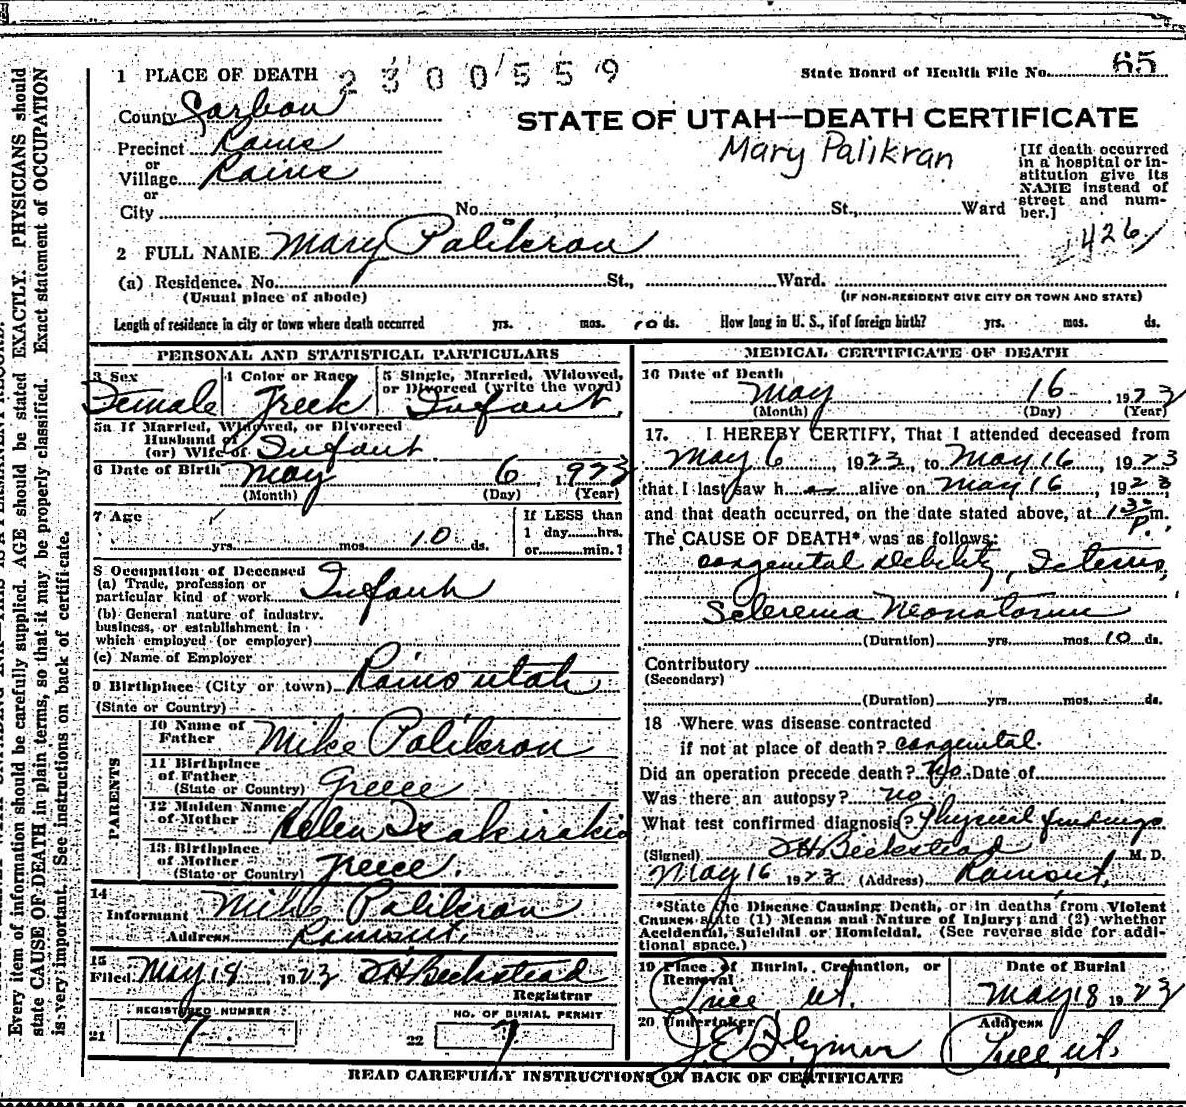 1 PLACE OF DEATH 2300559
State Board of Health File No. 65
County Carbon
STATE OF UTAH—DEATH CERTIFICATE
Mary Palikran
Precinct Rains
or
Village Rains
or
City No. St., Ward
[If death occurred
in a hospital or in-
stitution give its
NAME instead of
street and num-
ber.]
426
2 FULL NAME Mary Palikran
(a) Residence. No. St., Ward.
(Usual place of abode) (IF NON-RESIDENT GIVE CITY OR TOWN AND STATE)
Length of residence in city or town where death occurred yrs. mos. 10 ds. How long in U. S., if of foreign birth? yrs. mos. ds.
PERSONAL AND STATISTICAL PARTICULARS
3 Sex 4 Color or Race 5 Single, Married, Widowed,
or Divorced (write the word)
Female Greek Infant.
5a If Married, Widowed, or Divorced
Husband of
(or) Wife of Infant.
6 Date of Birth May 6 1923
(Month) (Day) (Year)
7 Age If LESS than
1 day....hrs.
yrs. mos. 10 ds. or....min.?
8 Occupation of Deceased
(a) Trade, profession or
particular kind of work Infant
(b) General nature of industry,
business, or establishment in
which employed (or employer)
(c) Name of Employer
9 Birthplace (City or town) Rains Utah
(State or Country)
PARENTS
10 Name of
Father Mike Palikran
11 Birthplace
of Father
(State or Country) Greece
12 Maiden Name
of Mother Helen
13 Birthplace
of Mother
(State or Country) Greece.
14
Informant Mike Palikran
Address Rains ut.
15
Filed May 18, 1923 JH Beckstead
Registrar
REGISTERED NUMBER NO. OF BURIAL PERMIT
21 7 22 7
MEDICAL CERTIFICATE OF DEATH
16 Date of Death
May 16 1923
(Month) (Day) (Year)
17. I HEREBY CERTIFY, That I attended deceased from
May 6, 1923, to May 16, 1923
that I last saw h er alive on May 16, 1923
and that death occurred, on the date stated above, at 1 30 P.m.
The CAUSE OF DEATH* was as follows:
congenital debility, Icterus,
Sclerema Neonatorum
(Duration) yrs. mos. 10 ds.
Contributory
(Secondary)
(Duration) yrs. mos. ds.
18 Where was disease contracted
if not at place of death? congenital.
Did an operation precede death? No. Date of
Was there an autopsy? no
What test confirmed diagnosis? Physical findings
(Signed) JH Beckstead M. D.
May 16 1923 (Address) Rains ut.
*State the Disease Causing Death, or in deaths from Violent
Causes state (1) Means and Nature of Injury; and (2) whether
Accidental, Suicidal or Homicidal. (See reverse side for addi-
tional space.)
19 Place of Burial, Cremation, or Removal Date of Burial
Price ut. May 18 1923
20 Undertaker Address
J E Flynn Price, ut.
READ CAREFULLY INSTRUCTIONS ON BACK OF CERTIFICATE
Every item of information should be carefully supplied. AGE should be stated EXACTLY. PHYSICIANS should
state CAUSE OF DEATH in plain terms, so that it may be properly classified. Exact statement of OCCUPATION
is very important. See instructions on back of certificate.